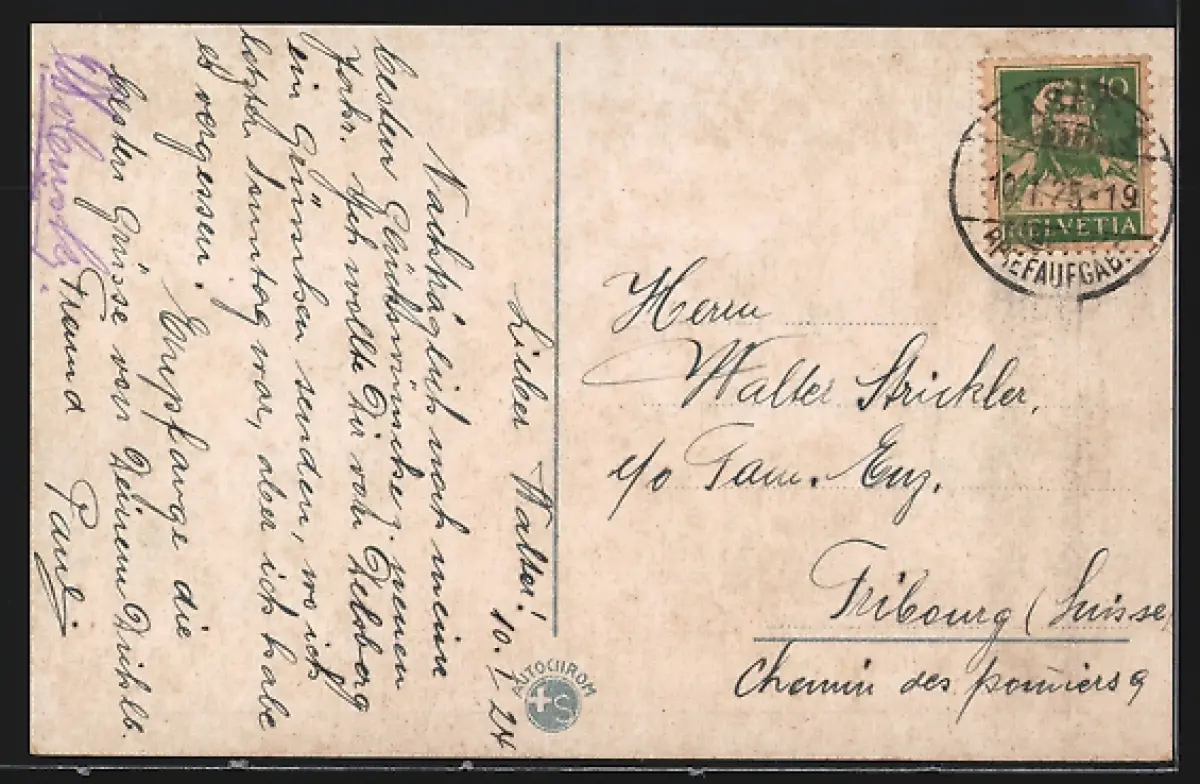 10. I. 24
Lieber Walter!
Nachträglich noch meine
besten Glückwünsche z. neuen
Jahr. Ich wollte Dir von Delsberg
ein Grüsschen senden, wo ich
letzte Sonntag war, aber ich habe
es vergessen.
Empfange die
besten Grüsse von Deinem Dichlb.
Freund Paul
Herrn
Walter Strickler,
c/o Fam. Enz.
Fribourg (Suisse)
Chemin des pommiers 9
AUTOCHROM
+S
10
HELVETIA
10.I.25-19
BRIEFAUFGABE